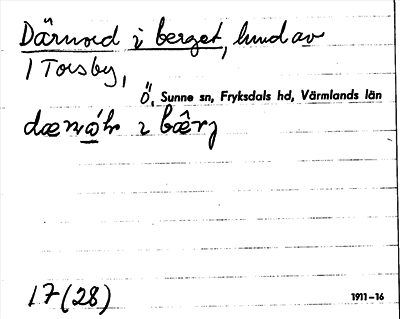 Därnord i berget, hmd av
1 Torsby,
Ö. Sunne sn, Fryksdals hd, Värmlands län
i bærj
17(28)
1911-16